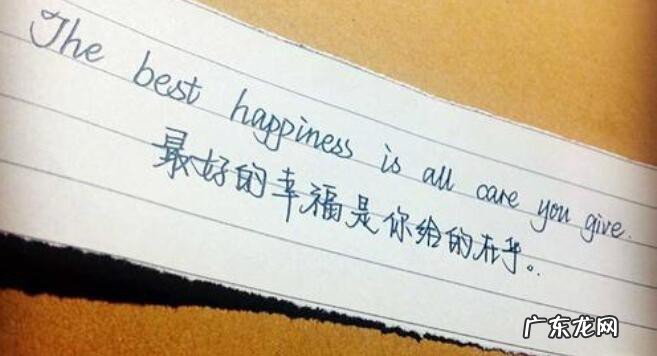 The best happiness is all care you give.
最好的幸福是你给的在乎。
广东龙网